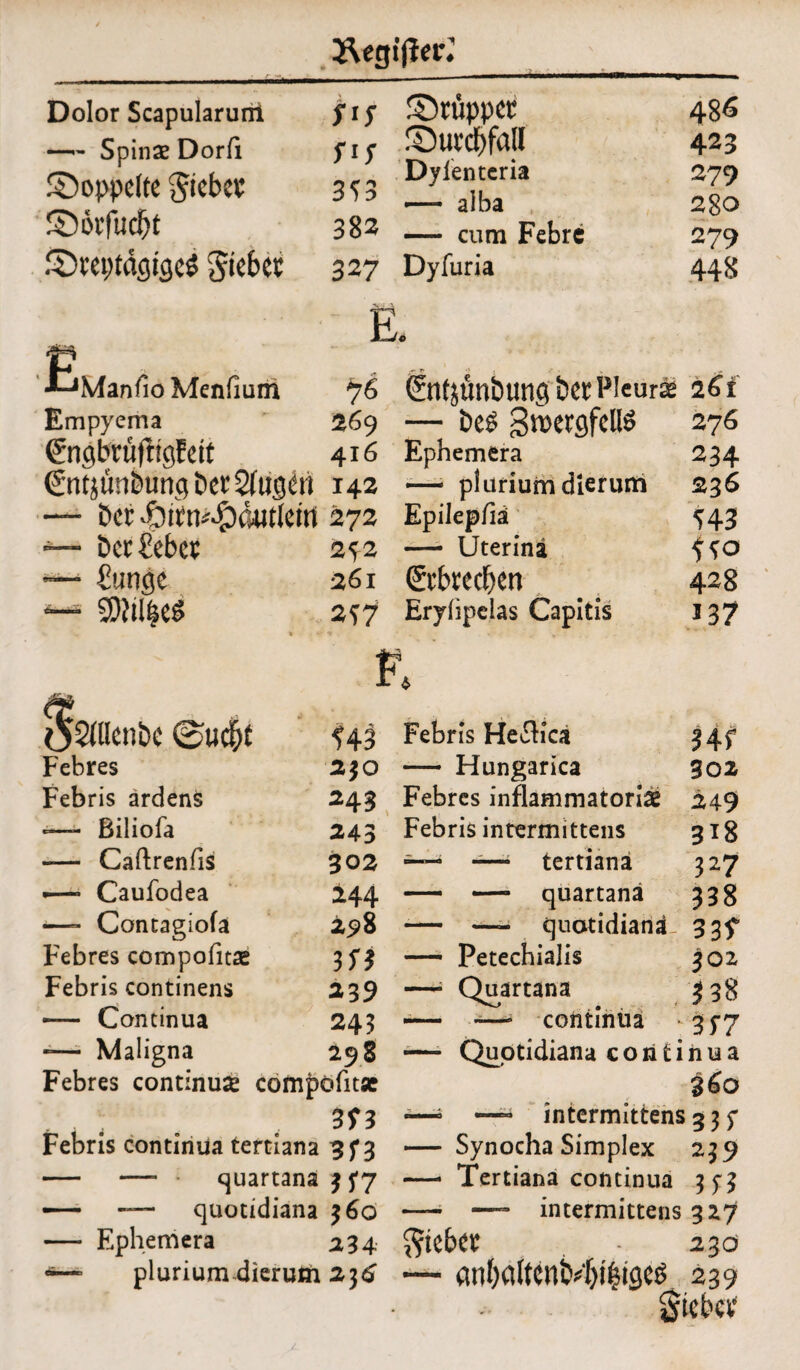 Register.
Dolor Scapularum 515
—– Spinæ Dorſi 515
Doppelte Fieber 353
Dörſucht 382
Dreytägiges Fieber 327
Drüpper 486
Durchfall 423
Dyſenteria 279
—– alba 280
—– cum Febre 279
Dyſuria 448
E.
EManſio Menſium 76
Empyema 269
Engbrüſtigkeit 416
Entzündung der Augen 142
—– der Hirn-Häutlein 272
—– der Leber 252
—– Lunge 261
—– Miltzes 257
Entzündung der Pleuræ 261
—– des Zwergfells 276
Ephemera 234
—– plurium dierum 236
Epilepſia 543
—– Uterina 550
Erbrechen 428
Eryſipelas Capitis 137
F.
FAllende Sucht 543
Febres 230
Febris ardens 243
—– Bilioſa 243
—– Caſtrenſis 302
—– Cauſodea 244
—– Contagioſa 298
Febres compoſitæ 353
Febris continens 239
—– Continua 243
—– Maligna 298
Febres continuæ compoſitæ
353
Febris continua tertiana 353
—– —– quartana 357
—– —– quotidiana 360
—– Ephemera 234
—– plurium dierum 236
Febris Hectica 345
—– Hungarica 302
Febres inflammatoriæ 249
Febris intermittens 318
—– —– tertiana 327
—– —– quartana 338
—– —– quotidiana 335
—– Petechialis 302
—– Quartana 338
—– —– continua 357
—– Quotidiana continua
360
—– —– intermittens 335
—– Synocha Simplex 239
—– Tertiana continua 353
—– —– intermittens 327
Fieber 230
—– anhaltend-hitziges 239
Fieber